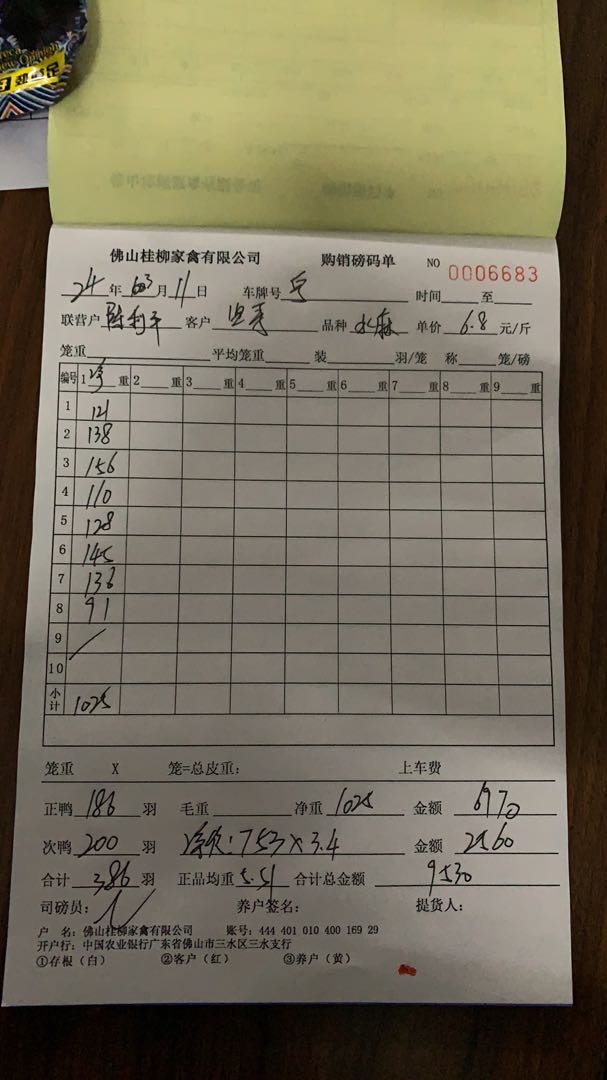 佛山桂柳家禽有限公司 购销磅码单 NO 0006683
24 年 6 月 11 日 车牌号 时间 至
联营户 客户 品种 水麻 单价 6.8 元/斤
笼重 平均笼重 装 羽/笼 称 笼/磅
编号 1 净 重 2 重 3 重 4 重 5 重 6 重 7 重 8 重 9 重
1 121
2 138
3 156
4 110
5 128
6 145
7 136
8 91
9
10
小计 1025
笼重 X 笼=总皮重： 上车费
正鸭 186 羽 毛重 净重 1025 金额 6970
次鸭 200 羽 净次：753×3.4 金额 2560
合计 386 羽 正品均重 5.51 合计总金额 9530
司磅员： 养户签名： 提货人：
户 名：佛山桂柳家禽有限公司 账号：444 401 010 400 169 29
开户行：中国农业银行广东省佛山市三水区三水支行
①存根（白） ②客户（红） ③养户（黄）